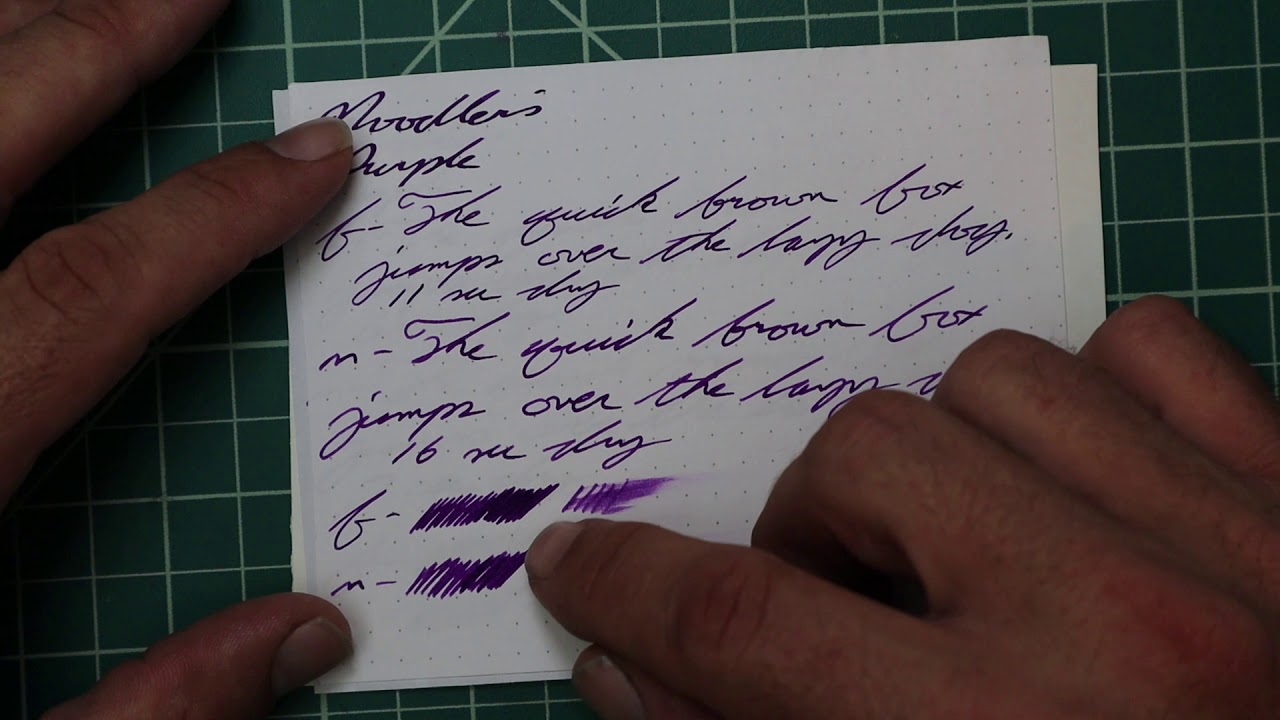 Noodler's
Purple
f- The quick brown fox
jumps over the lazy dog.
11 sec dry
m- The quick brown fox
jumps over the lazy
16 sec dry
f-
m-